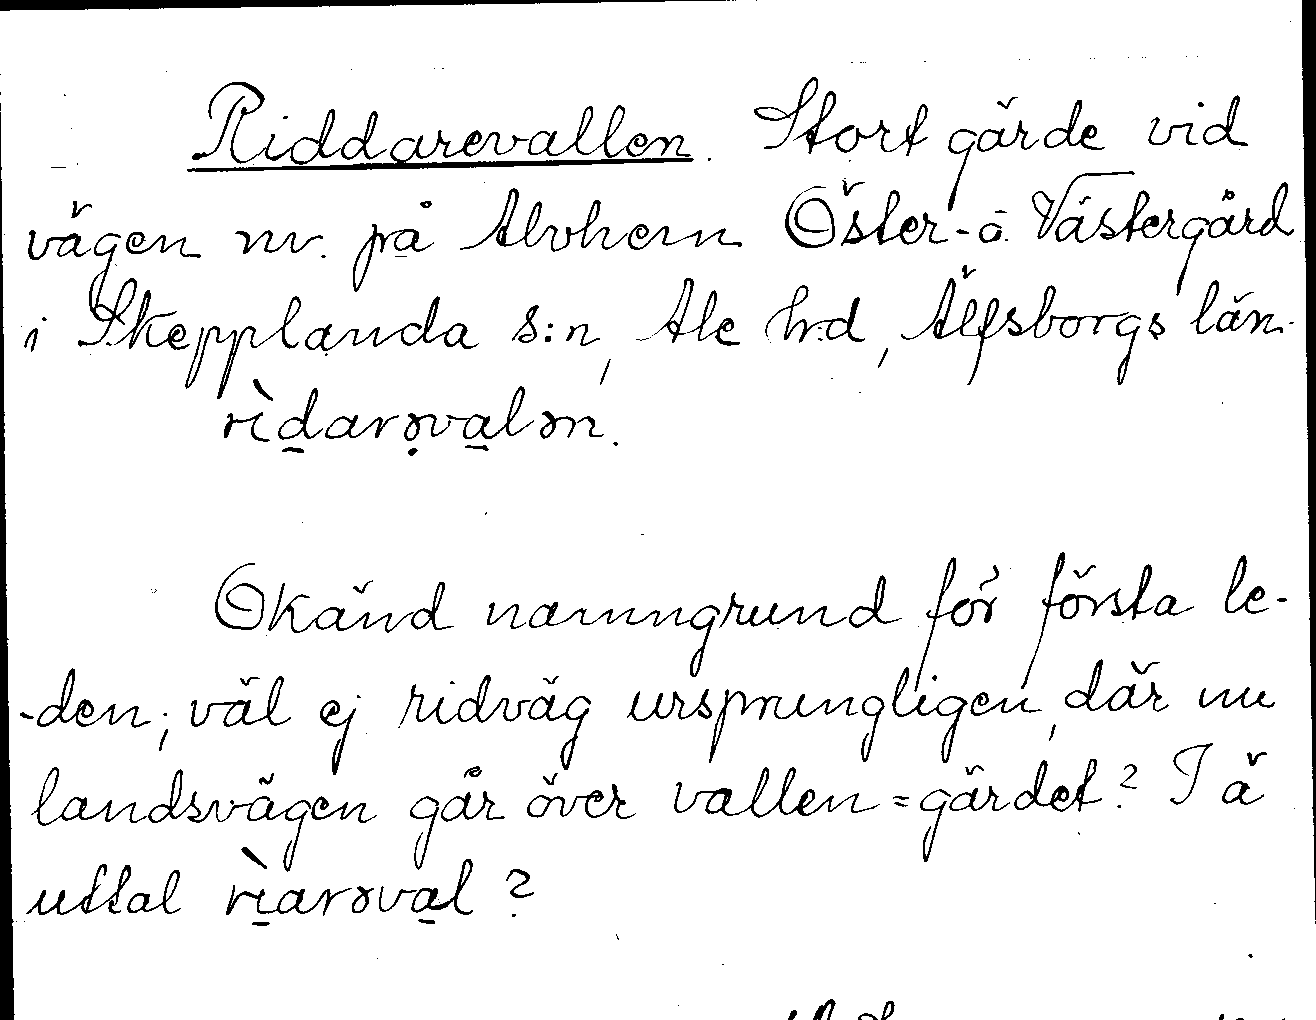 Riddarevallen. Stort gärde vid
vägen nv. på Alvhem Öster- o. Västergård
i Skepplanda s:n, Ale hd, Älfsborgs län.
rìdarəvalən.
Okänd namngrund för första le-
-den; väl ej ridväg ursprungligen, där nu
landsvägen går över vallen = gärdet? I ä
uttal rìarəval?